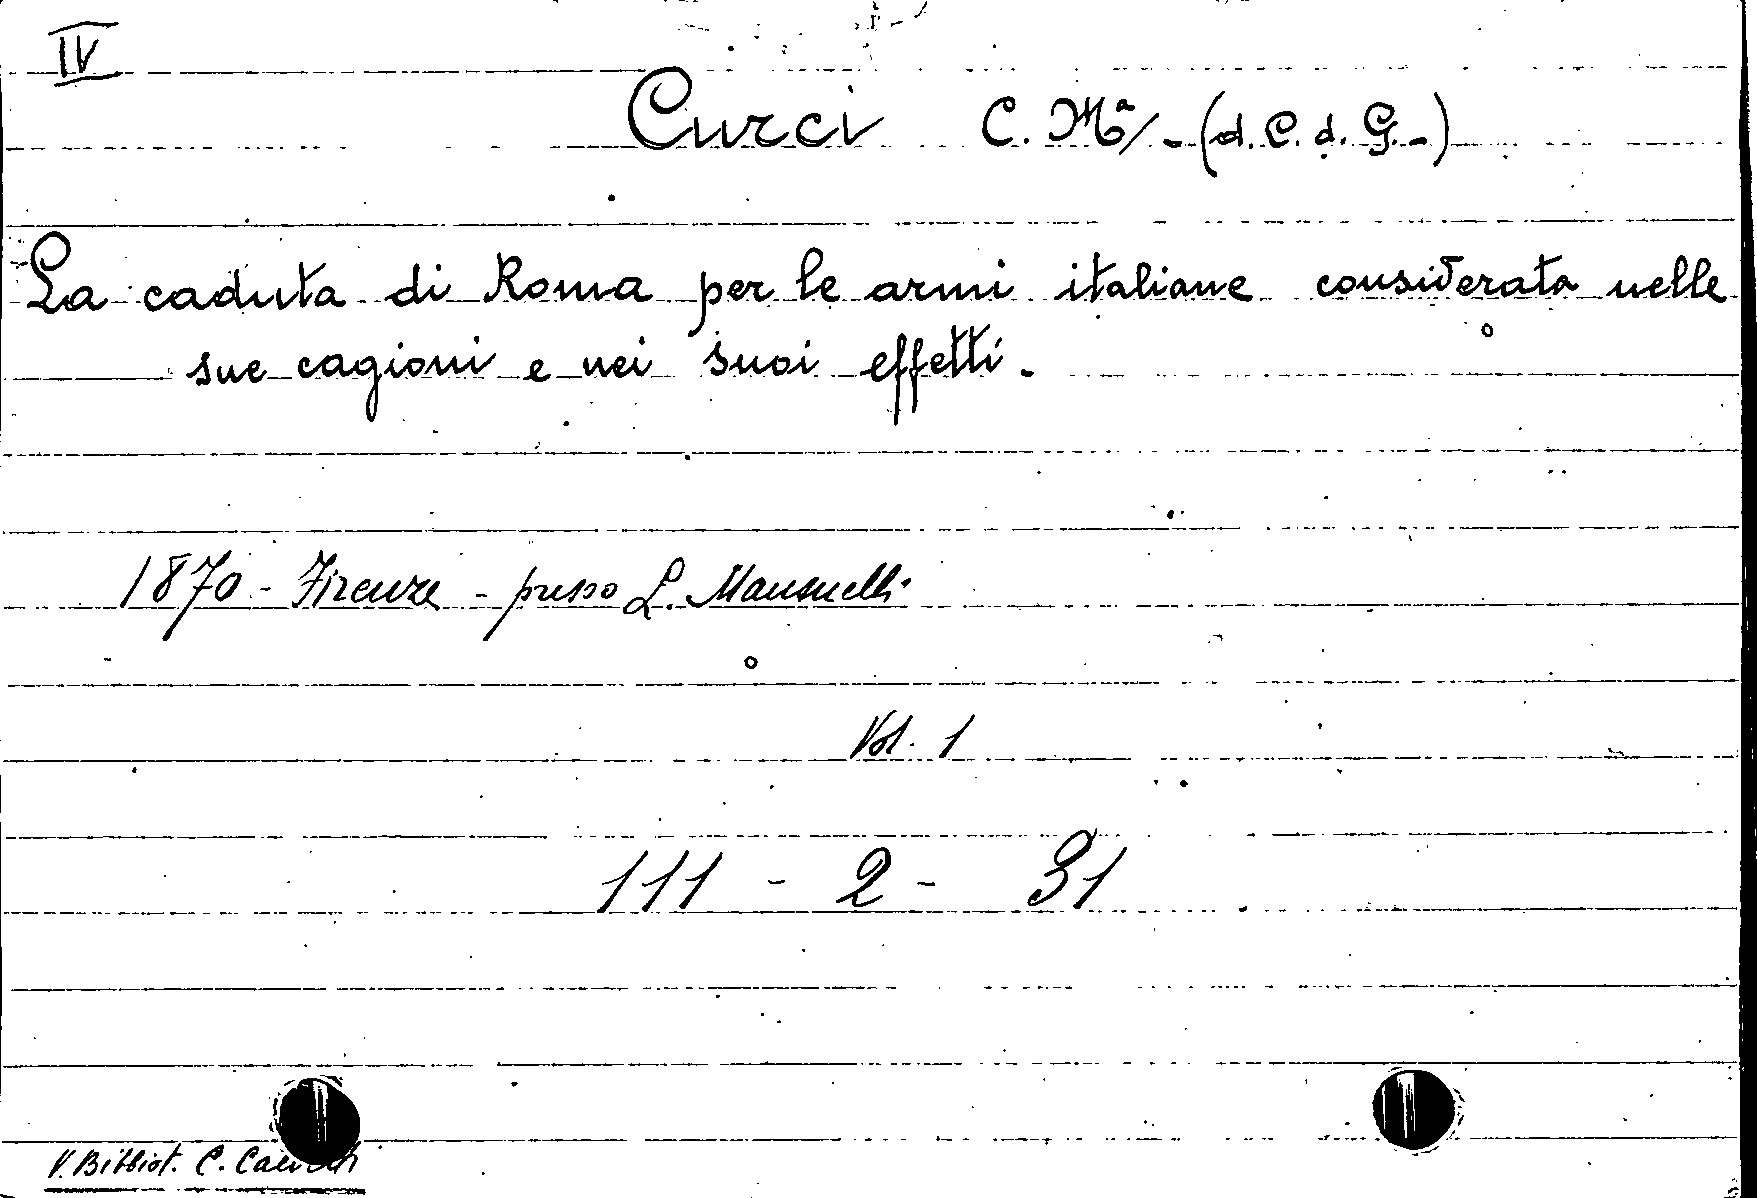 IV
Curci C. Mª/- (d. C. d. G.-)
La caduta di Roma per le armi italiane considerata nelle
sue cagioni e nei suoi effetti.
1870 - Firenze - presso L. Mansuelli
Vol. 1
111 - 2 - 31
V. Bibliot. C.